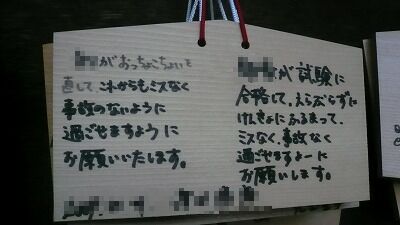 が試験に
合格して、えらぶらずに
けんきょにふるまって、
ミスなく、事故なく
過ごせますよーに
お願いします。
がおっちょこちょいを
直して、これからもミスなく
事故のないように
過ごせますように
お願いいたします。